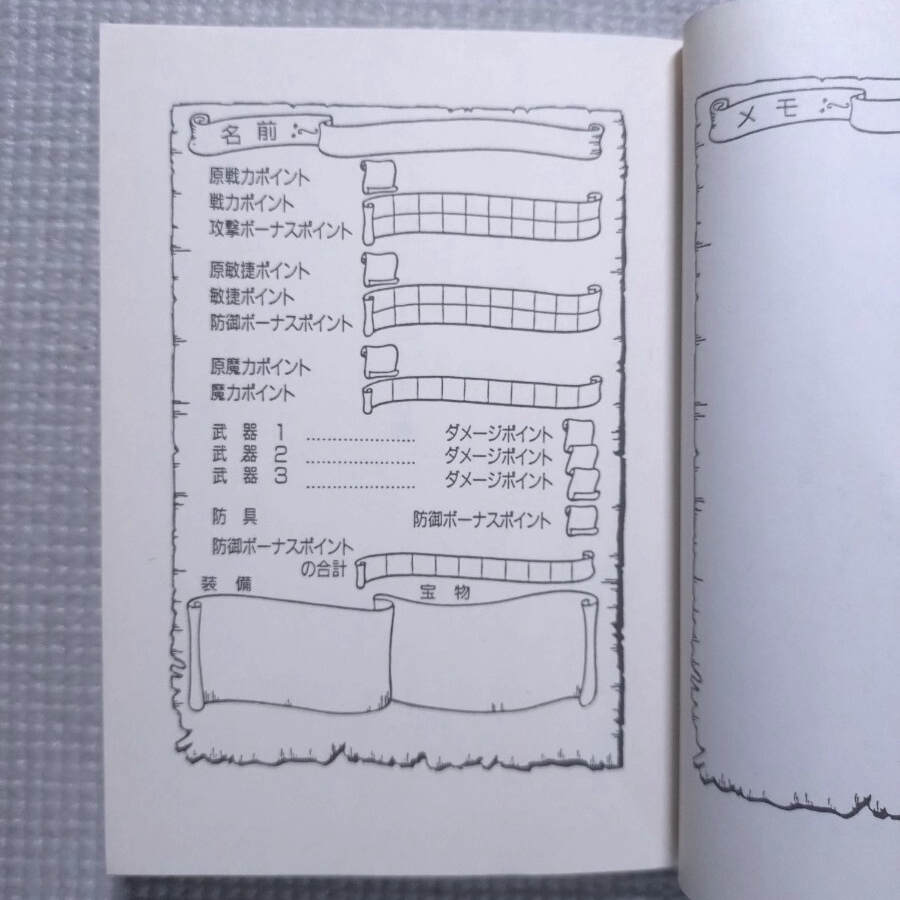 名前
原戦力ポイント
戦力ポイント
攻撃ボーナスポイント
原敏捷ポイント
敏捷ポイント
防御ボーナスポイント
原魔力ポイント
魔力ポイント
武器 1 ダメージポイント
武器 2 ダメージポイント
武器 3 ダメージポイント
防具 防御ボーナスポイント
防御ボーナスポイント
の合計
装備 宝物
メモ